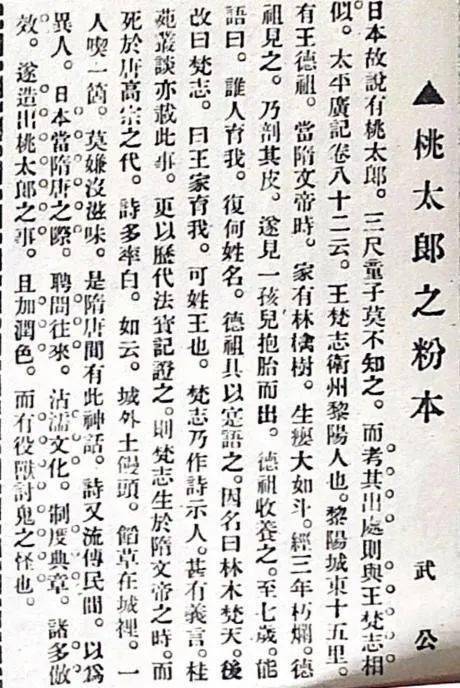 ▲桃太郎之粉本
武公
日本故說有桃太郎。三尺童子莫不知之。而考其出處則與王梵志相
似。太平廣記卷八十二云。王梵志衛州黎陽人也。黎陽城東十五里。
有王德祖。當隋文帝時。家有林檎樹。生癭大如斗。經三年朽爛。德
祖見之。乃剖其皮。遂見一孩兒抱胎而出。德祖收養之。至七歲。能
語曰。誰人育我。復何姓名。德祖具以寔語之。因名曰林木梵天。後
改曰梵志。曰王家育我。可姓王也。梵志乃作詩示人。甚有義言。桂
苑叢談亦載此事。更以歷代法寶記證之。則梵志生於隋文帝之時。而
死於唐高宗之代。詩多率白。如云。城外土饅頭。餡草在城裡。一
人喫一箇。莫嫌沒滋味。是隋唐間有此神話。詩又流傳民間。以爲
異人。日本當隋唐之際。聘問往來。沾濡文化。制度典章。諸多倣
效。遂造出桃太郎之事。且加潤色。而有役獸討鬼之怪也。